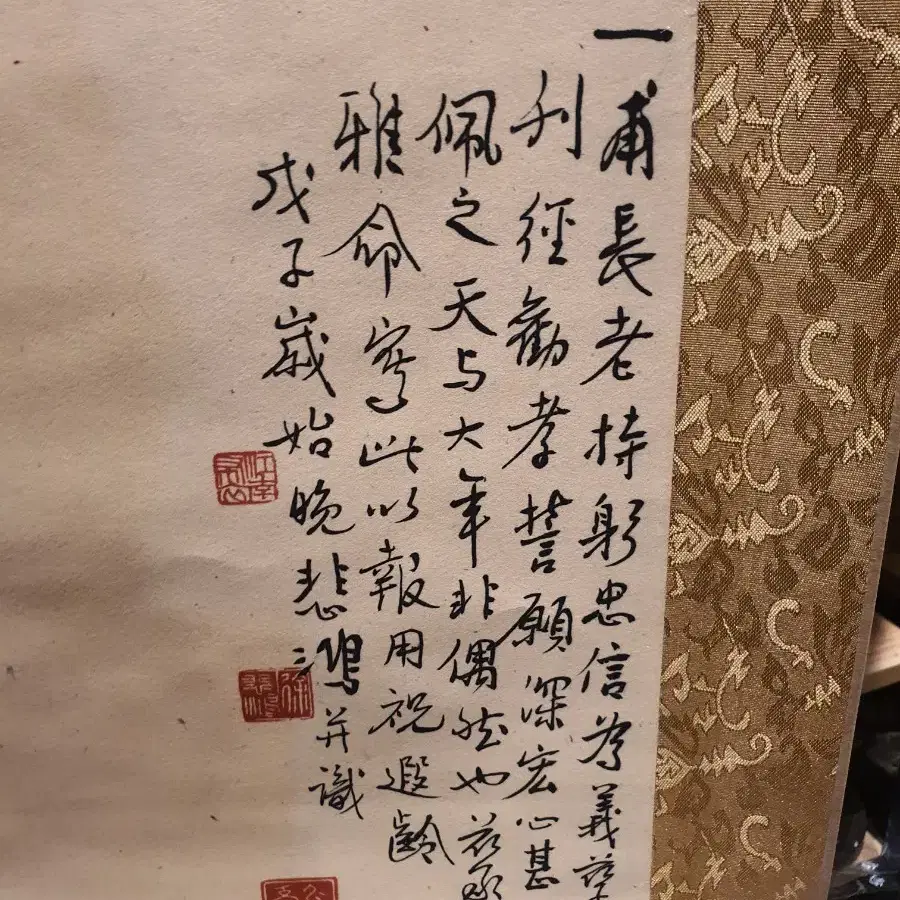 一甫長老持躬忠信為義
刊經勸孝誓願深宏心甚
佩之天与大年非偶然也茲承
雅命寫此以報用祝遐齡
戊子歲始晚悲鴻并識
江南布衣
徐悲鴻